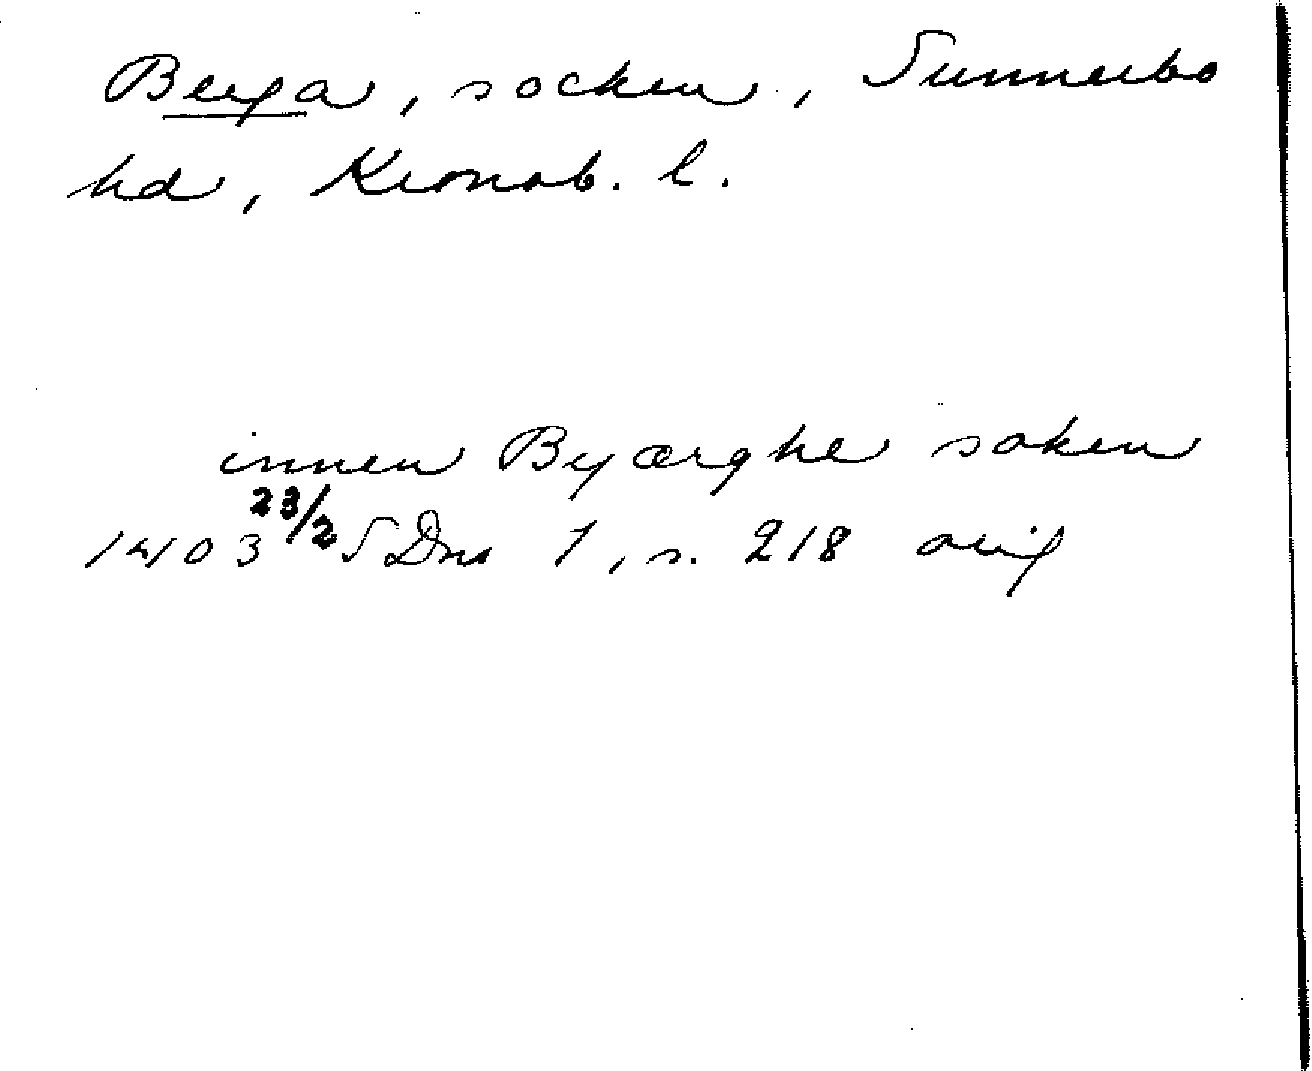 Berga, socken, Sunnerbo
hd, Kronob. l.
innen Byærghe soken
1403 23/2 SDns 1, s. 218 orig